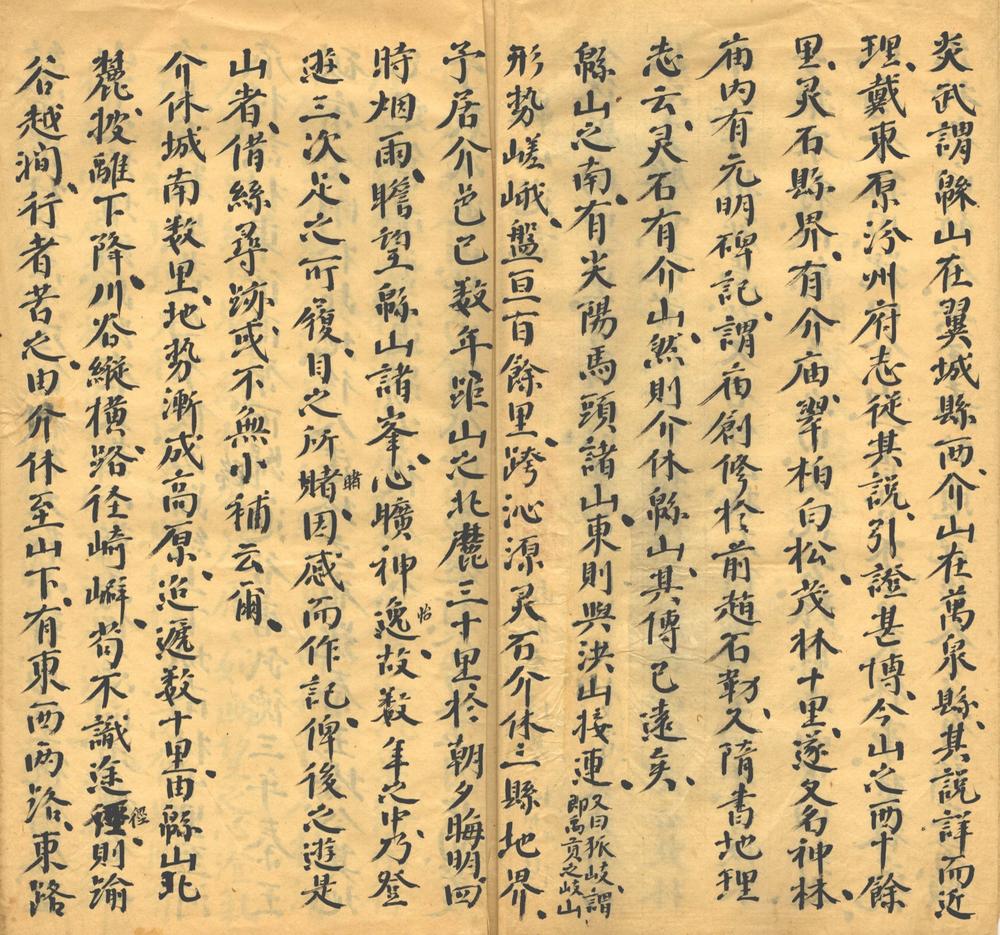 炎武謂緜山在翼城縣西、介山在萬泉縣、其説詳而近
理、戴東原汾州府志從其説、引證甚博、今山之西十餘
里、灵石縣界、有介庙、翠柏白松、茂林十里、遂又名神林、
庙内有元明碑記、謂庙創修於前趙石勒、又隋書地理
志云、灵石有介山、然則介休緜山、其傳已遠矣、
緜山之南、有尖陽馬頭諸山、東則與洪山接連、又曰狐岐、謂即禹貢之岐山、
形勢嵯峨、盤亘百餘里、跨沁源灵石介休三縣地界、
予居介邑已数年、距山之北麓三十里、於朝夕晦明四
時烟雨、瞻望緜山諸峯、心曠神逸怡、故数年之中、乃登
遊三次、足之所履、目之所賭睹、因感而作記、俾後之遊是
山者、借絲尋跡、或不無小補云爾、
介休城南数里、地势漸成高原、迨遞数十里、由緜山北
麓、披離下降、川谷縱橫、路径崎嶇、苟不識途徑、則踰
谷越澗、行者苦之、由介休至山下、有東西两路、東路